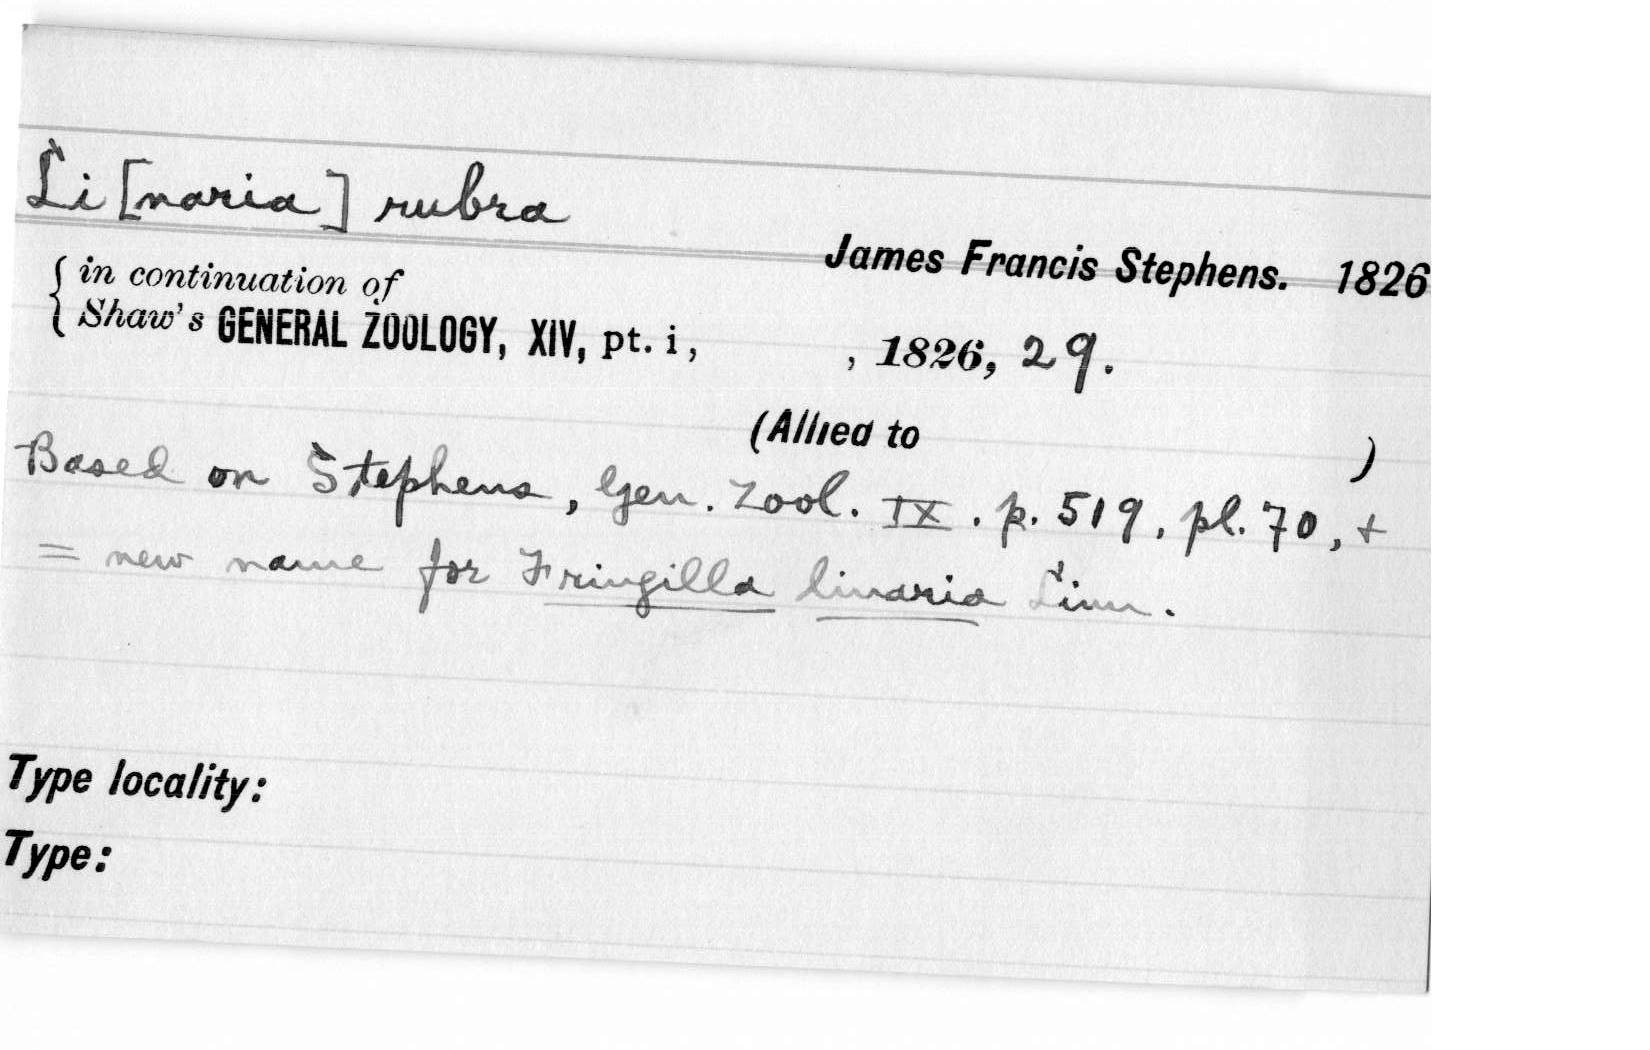 Li [naria] rubra
James Francis Stephens. 1826
in continuation of
Shaw's GENERAL ZOOLOGY, XIV, pt. i, , 1826, 29.
(Allied to )
Based on Stephens, Gen. Zool. IX. p. 519, pl. 70, +
= new name for Fringilla linaria Linn.
Type locality:
Type: